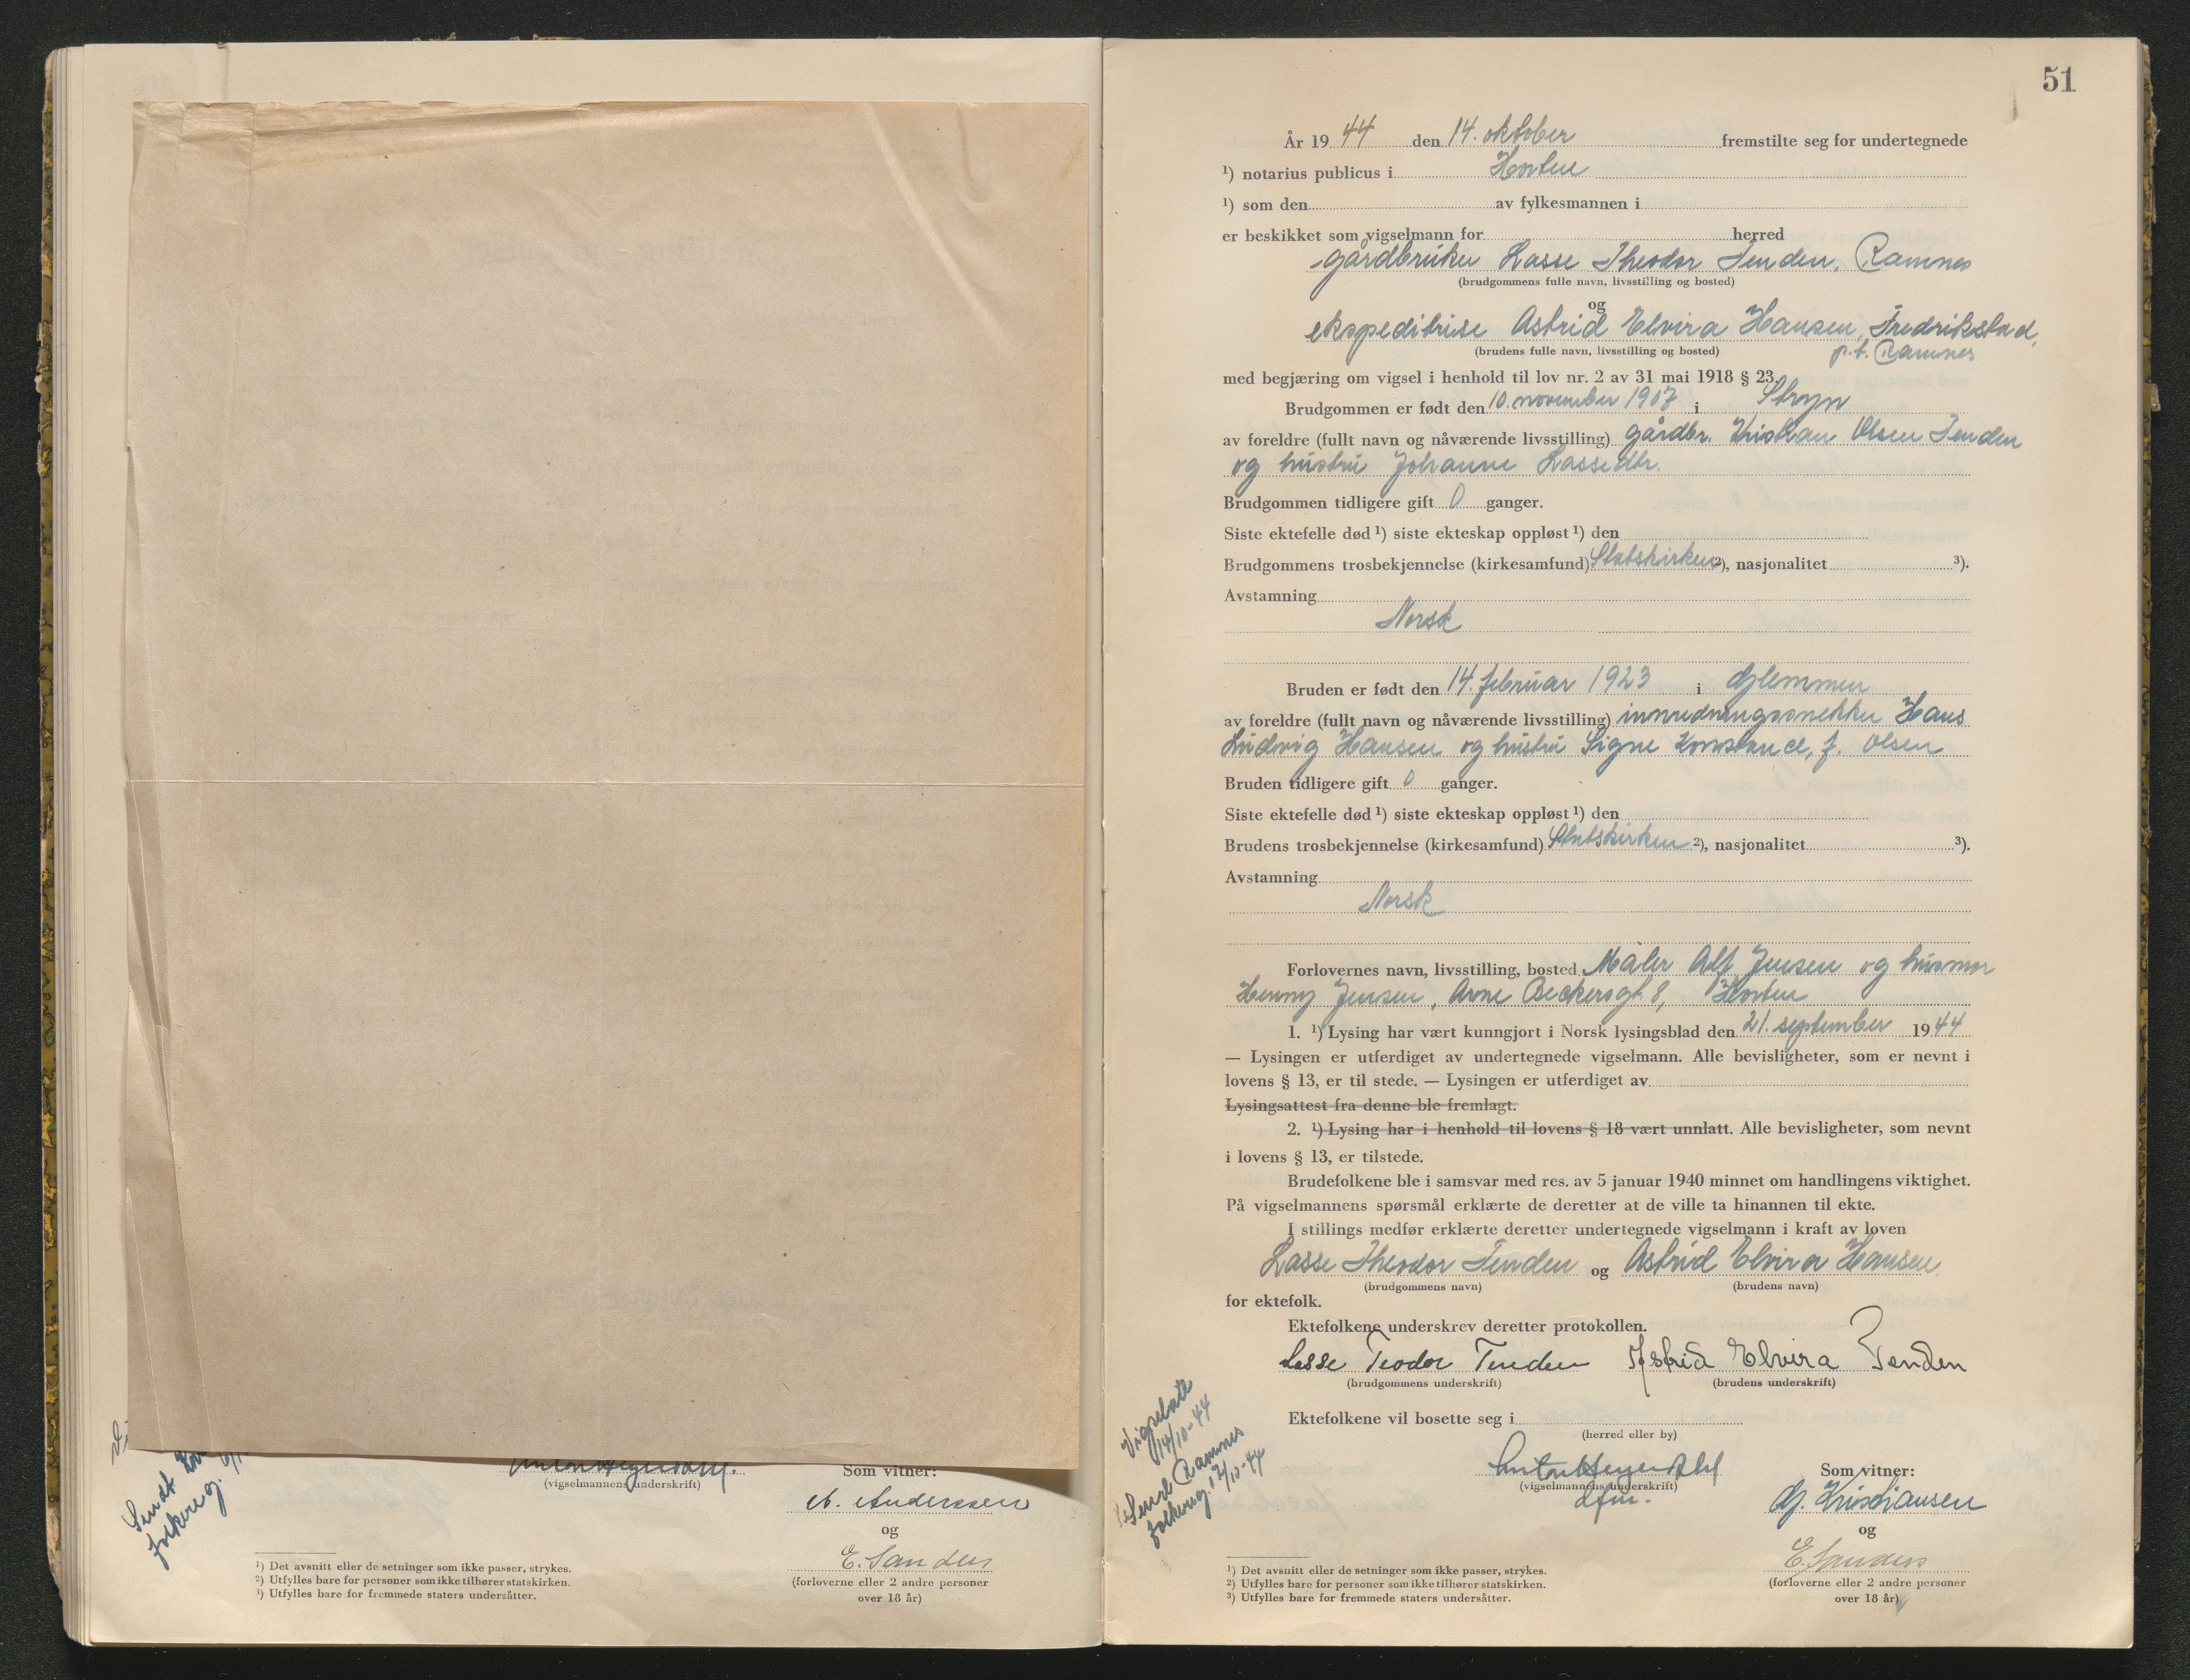 Sendt
folkereg.
(vigselmannens underskrift)
Som vitner:
A. Anderssen
og
E. Sanders
(forloverne eller 2 andre personer
over 18 år)
¹) Det avsnitt eller de setninger som ikke passer, strykes.
²) Utfylles bare for personer som ikke tilhører statskirken.
³) Utfylles bare for fremmede staters undersåtter.
51
År 1944 den 14. oktober fremstilte seg for undertegnede
¹) notarius publicus i Horten
¹) som den av fylkesmannen i
er beskikket som vigselmann for herred
gårdbruker Lasse Theodor Tenden, Ramnes
(brudgommens fulle navn, livsstilling og bosted)
og
ekspeditrise Astrid Elvira Hansen, Fredrikstad,
(brudens fulle navn, livsstilling og bosted) p.t. Ramnes
med begjæring om vigsel i henhold til lov nr. 2 av 31 mai 1918 § 23.
Brudgommen er født den 10. november 1907 i Stryn
av foreldre (fullt navn og nåværende livsstilling) gårdbr. Kristian Olsen Tenden
og hustru Johanne Lassedtr.
Brudgommen tidligere gift 0 ganger.
Siste ektefelle død ¹) siste ekteskap oppløst ¹) den
Brudgommens trosbekjennelse (kirkesamfund) Statskirken ²), nasjonalitet ³).
Avstamning
Norsk
Bruden er født den 14. februar 1923 i Glemmen
av foreldre (fullt navn og nåværende livsstilling) innredningssnekker Hans
Ludvig Hansen og hustru Signe Konstance, f. Olsen
Bruden tidligere gift 0 ganger.
Siste ektefelle død ¹) siste ekteskap oppløst ¹) den
Brudens trosbekjennelse (kirkesamfund) Statskirken ²), nasjonalitet ³).
Avstamning
Norsk
Forlovernes navn, livsstilling, bosted Maler Alf Jensen og husmor
Henny Jensen, Arne Beckersgt. 8, Horten
1. ¹) Lysing har vært kunngjort i Norsk lysingsblad den 21. september 1944
— Lysingen er utferdiget av undertegnede vigselmann. Alle bevisligheter, som er nevnt i
lovens § 13, er til stede. — Lysingen er utferdiget av
Lysingsattest fra denne ble fremlagt.
2. ¹) Lysing har i henhold til lovens § 18 vært unnlatt. Alle bevisligheter, som nevnt
i lovens § 13, er tilstede.
Brudefolkene ble i samsvar med res. av 5 januar 1940 minnet om handlingens viktighet.
På vigselmannens spørsmål erklærte de deretter at de ville ta hinannen til ekte.
I stillings medfør erklærte deretter undertegnede vigselmann i kraft av loven
Lasse Theodor Tenden og Astrid Elvira Hansen
(brudgommens navn) (brudens navn)
for ektefolk.
Ektefolkene underskrev deretter protokollen.
Lasse Teodor Tenden Astrid Elvira Tenden
(brudgommens underskrift) (brudens underskrift)
Ektefolkene vil bosette seg i
(herred eller by)
Vigselatt.
14/10-44
Send Ramnes
folkereg. 17/10-44
(vigselmannens underskrift)
dfm.
Som vitner:
Gj. Kristiansen
og
E. Sanders
(forloverne eller 2 andre personer
over 18 år)
¹) Det avsnitt eller de setninger som ikke passer, strykes.
²) Utfylles bare for personer som ikke tilhører statskirken.
³) Utfylles bare for fremmede staters undersåtter.